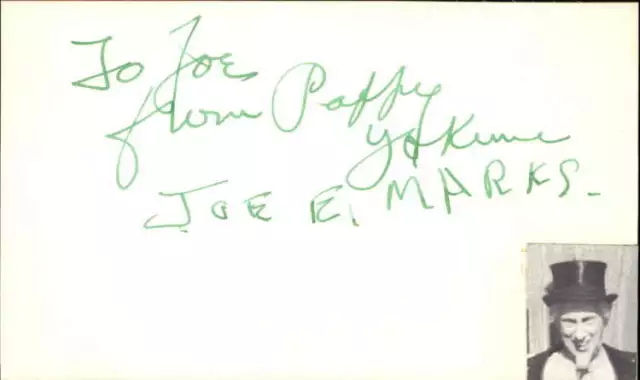 To Joe
from Pappy
Yokum
JOE E. MARKS.